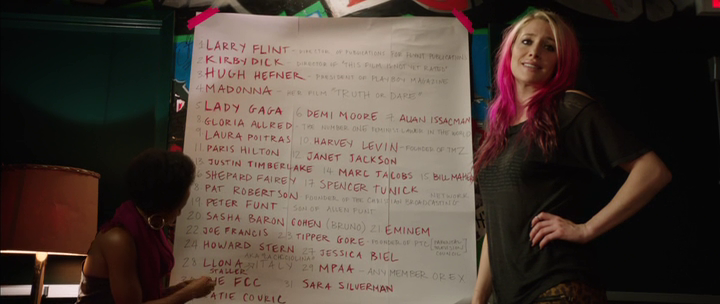 1 LARRY FLINT - DIRECTOR OF PUBLICATIONS FOR FLYNT PUBLICATIONS
2 KIRBY DICK - DIRECTOR OF "THIS FILM IS NOT YET RATED"
3 HUGH HEFNER - PRESIDENT OF PLAYBOY MAGAZINE
4 MADONNA - HER FILM "TRUTH OR DARE"
5 LADY GAGA 6 DEMI MOORE 7 ALLAN ISSACMAN
8 GLORIA ALLRED - THE NUMBER ONE FEMINIST LAWYER IN THE WORLD
9 LAURA POITRAS 10 HARVEY LEVIN - FOUNDER OF
11 PARIS HILTON 12 JANET JACKSON
13 JUSTIN TIMBERLAKE 14 MARC JACOBS 15 BILL MAHER
16 SHEPARD FAIREY 17 SPENCER TUNICK
18 PAT ROBERTSON FOUNDER OF THE CHRISTIAN BROADCASTING NETWORK
19 PETER FUNT - SON OF ALLEN FUNT
20 SASHA BARON COHEN (BRUNO) 21 EMINEM
22 JOE FRANCIS 23 TIPPER GORE - FOUNDER OF
24 HOWARD STERN JESSICA BIEL
28 LLONA STALLER AKA "CICCIOLINA" ITALY 29 MPAA - ANY MEMBER OR EX
THE FCC 31 SARA SILVERMAN
KATIE COURIC